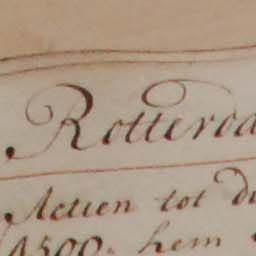 Rotterda
Actien tot d
1500. hem